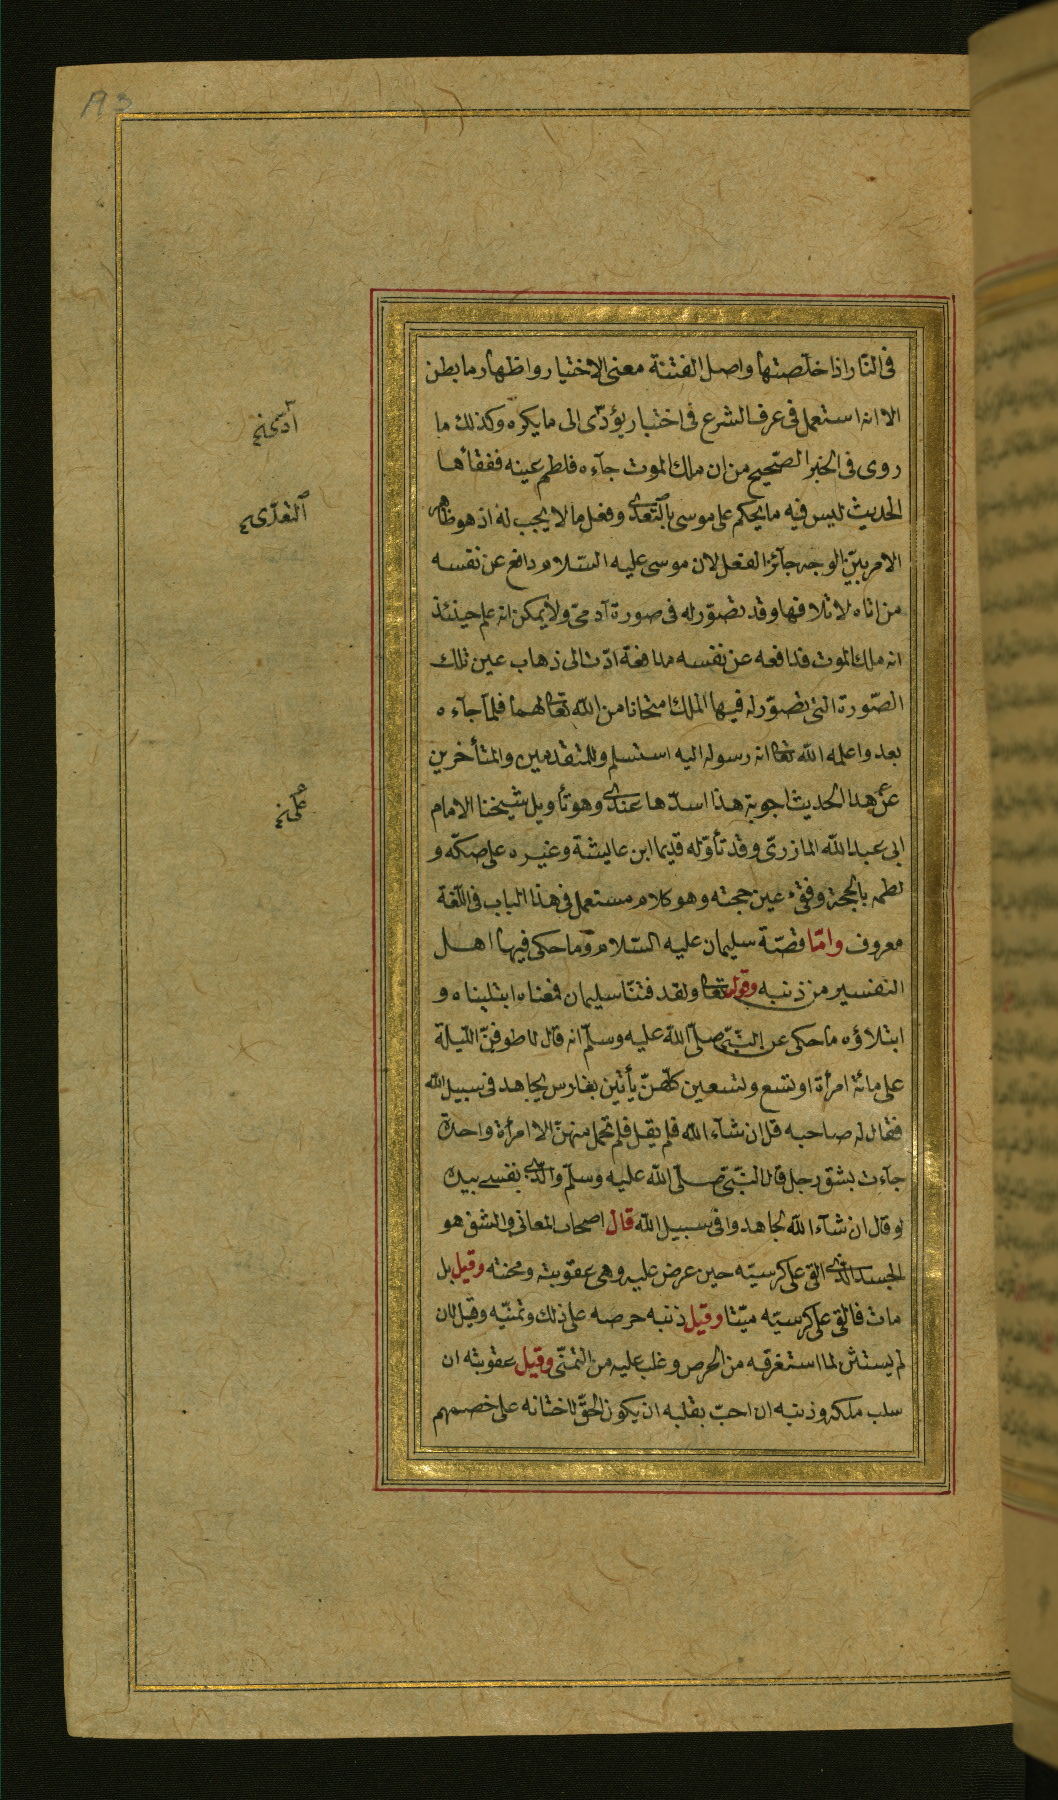 في النار اذا خلصتها واصل الفتنة معنى الاختبار واظهار ما بطن
الا انه استعمل في عرف الشرع في اختبار يؤدّى الى ما يكره وكذلك ما
روى في الخبر الصّحيح من ان ملك الموت جآءه فلطم عينه ففقأها
الحديث ليس فيه ما يحكم على موسى بالتّعدى وفعل ما لا يجب له اذ هو ظاهر
الامر بيّن الوجه جآئز الفعل لان موسى عليه السّلام دافع عن نفسه
من اتاه لاتلافها وقد تصوّر له في صورة آدمىّ ولا يمكن انه علم حينئذ
انه ملك الموت فدافعه عن نفسه مدافعة ادّت الى ذهاب عين تلك
الصّورة التى تصوّر له فيها الملك امتحانا من الله تعالى لهما فلمآ جآءه
بعد واعلمه الله تعالى انه رسوله اليه استسلم وللمتقدمين والمتأخرين
عن هذا الحديث اجوبة هذا اسدّها عندى وهو تأويل شيخنا الامام
ابى عبد الله المازرىّ وقد تأوّله قديما ابن عايشة وغيره على صكّه و
لطمه بالحجة وفقء عين حجته وهو كلام مستعمل في هذا الباب في اللّغة
معروف وامّا قصّة سليمان عليه السّلام وما حكى فيها اهل
التفسير من ذنبه وقوله تعالى ولقد فتنّا سليمان فمعناه ابتليناه و
ابتلاؤه ما حكى عن النّبىّ صلّى الله عليه وسلّم انه قال لاطوفنّ اللّيلة
على مائة امرأة او تسع وتسعين كلّهنّ يأتين بفارس يجاهد في سبيل الله
فقال له صاحبه قل ان شآء الله فلم يقل فلم تحمل منهنّ الا امرأة واحدة
جآءت بشق رجل قال النّبىّ صلّى الله عليه وسلّم والّذى نفسى بيده
لو قال ان شآء الله لجاهدوا في سبيل الله قال اصحاب المعانى والشق هو
الجسد الّذى القى على كرسيّه حين عرض عليه وهى عقوبته ومحنته وقيل بل
مات فالقى على كرسيّه ميّتا وقيل ذنبه حرصه على ذلك وتمنّيه وقيل لانه
لم يستثن لما استغرقه من الحرص وغلب عليه من التمنّى وقيل عقوبته ان
سلب ملكه وذنبه ان احبّ بقلبه ان يكون الحقّ لاختانه على خصمهم
التّعدّى